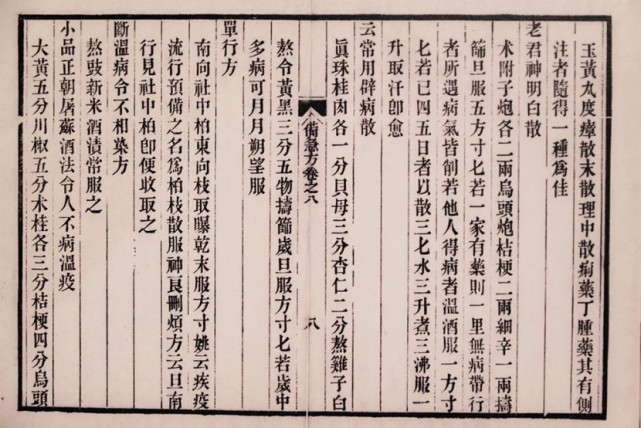 玉黃丸度瘴散末散理中散痢藥丁腫藥其有側
注者隨得一種爲佳
老君神明白散
术附子炮各二兩烏頭炮桔梗二兩細辛一兩擣
篩旦服五方寸匕若一家有藥則一里無病帶行
者所遇病氣皆削若他人得病者溫酒服一方寸
匕若已四五日者以散三匕水三升煮三沸服一
升取汗卽愈
云常用辟病散
眞珠桂肉各一分貝母三分杏仁二分熬雞子白
備急方卷之八
八
熬令黃黑三分五物擣篩歲旦服方寸匕若歲中
多病可月月朔望服
單行方
南向社中柏東向枝取曝乾末服方寸姚云疾疫
流行預備之名爲柏枝散服神良刪煩方云旦南
行見社中柏卽便收取之
斷溫病令不相染方
熬豉新米酒漬常服之
小品正朝屠蘇酒法令人不病溫疫
大黃五分川椒五分朮桂各三分桔梗四分烏頭